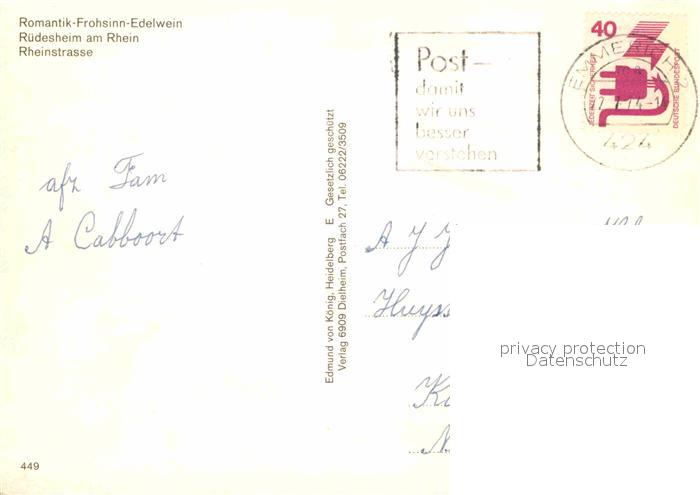 Romantik-Frohsinn-Edelwein
Rüdesheim am Rhein
Rheinstrasse
40
JEDERZEIT SICHERHEIT
DEUTSCHE BUNDESPOST
EMMERICH
424
Post –
damit
wir uns
besser
verstehen
afz Fam
A Cabboort
Edmund von König, Heidelberg E Gesetzlich geschützt
Verlag 6909 Dielheim, Postfach 27, Tel. 06222/3509
A
Huyss
privacy protection
Datenschutz
449